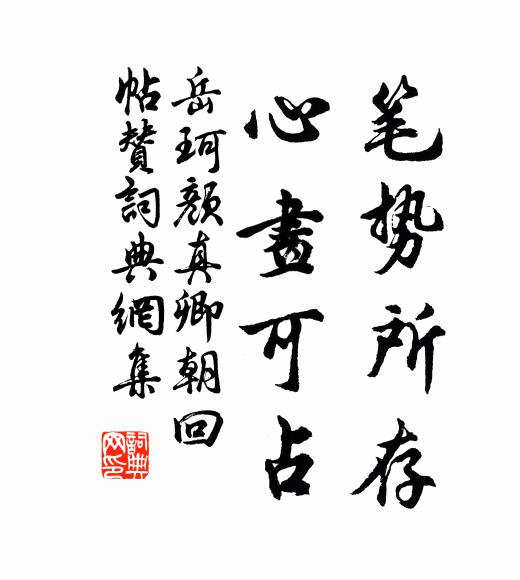 笔势所存
心畫可占
岳珂颜真卿朝回
帖贊詞典網集
詞典网印